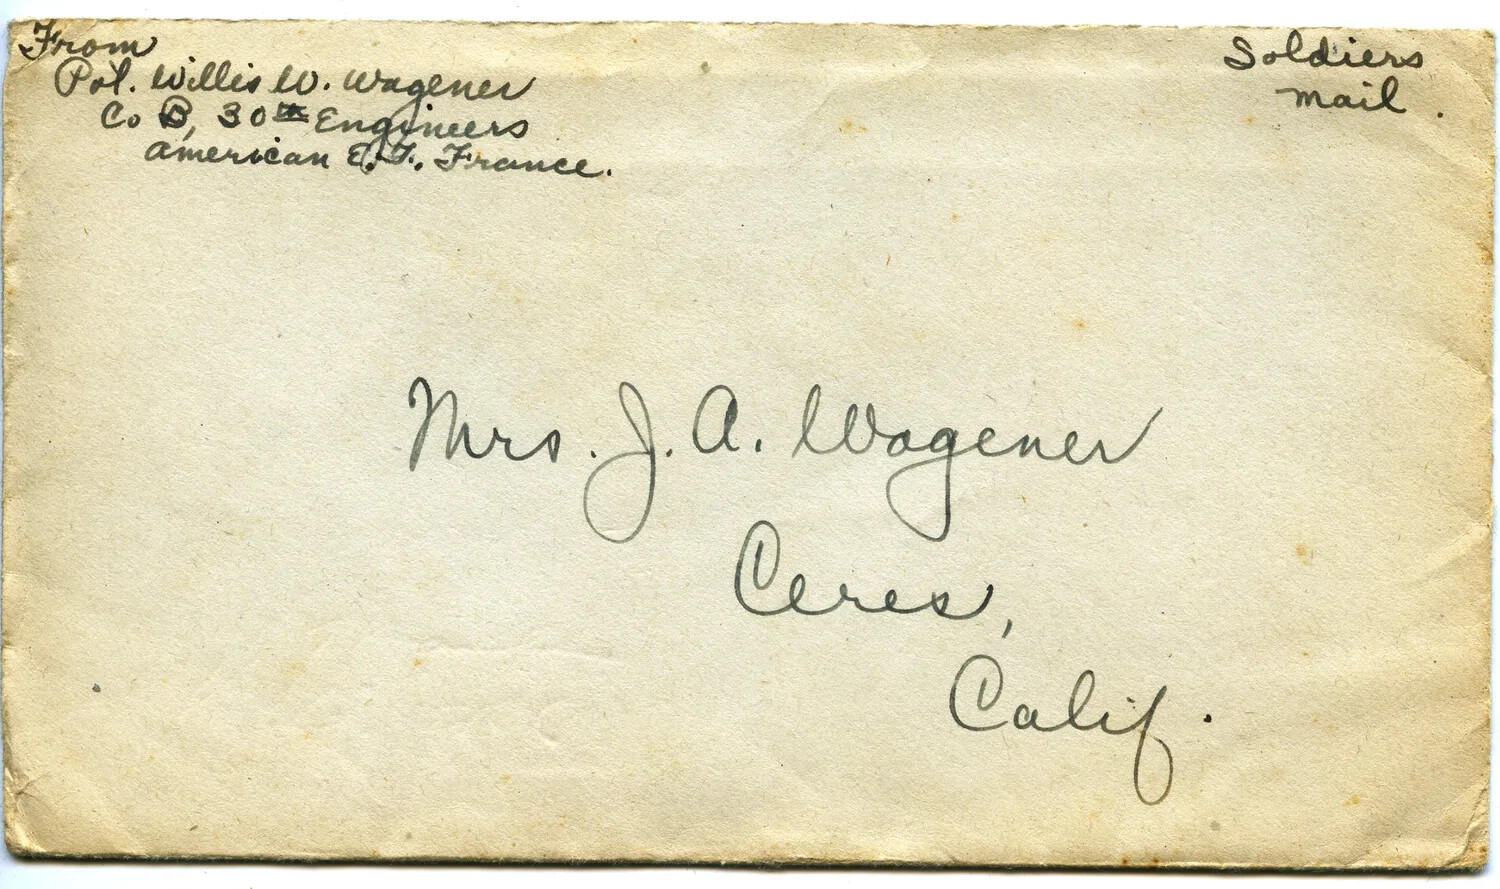 From
Pvt. Willis W. Wagener
Co B, 30th Engineers
American E.F. France.
Soldiers
Mail.
Mrs. J. A. Wagener
Ceres,
Calif.